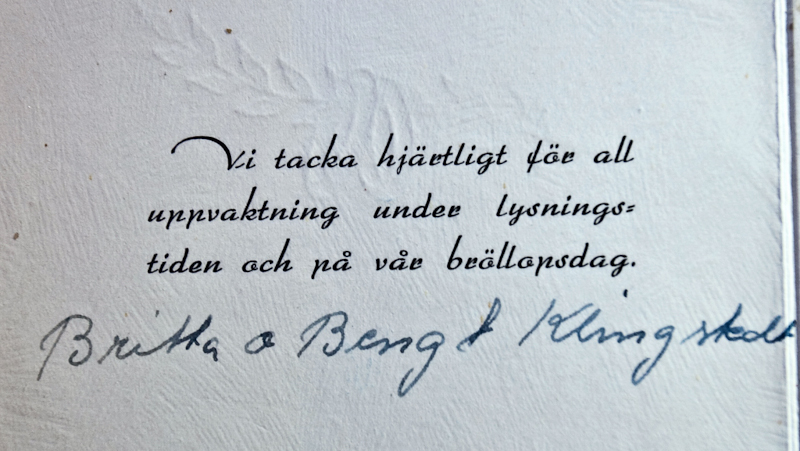 Vi tacka hjärtligt för all
uppvaktning under lysnings=
tiden och på vår bröllopsdag.
Britta o Bengt Klingstedt